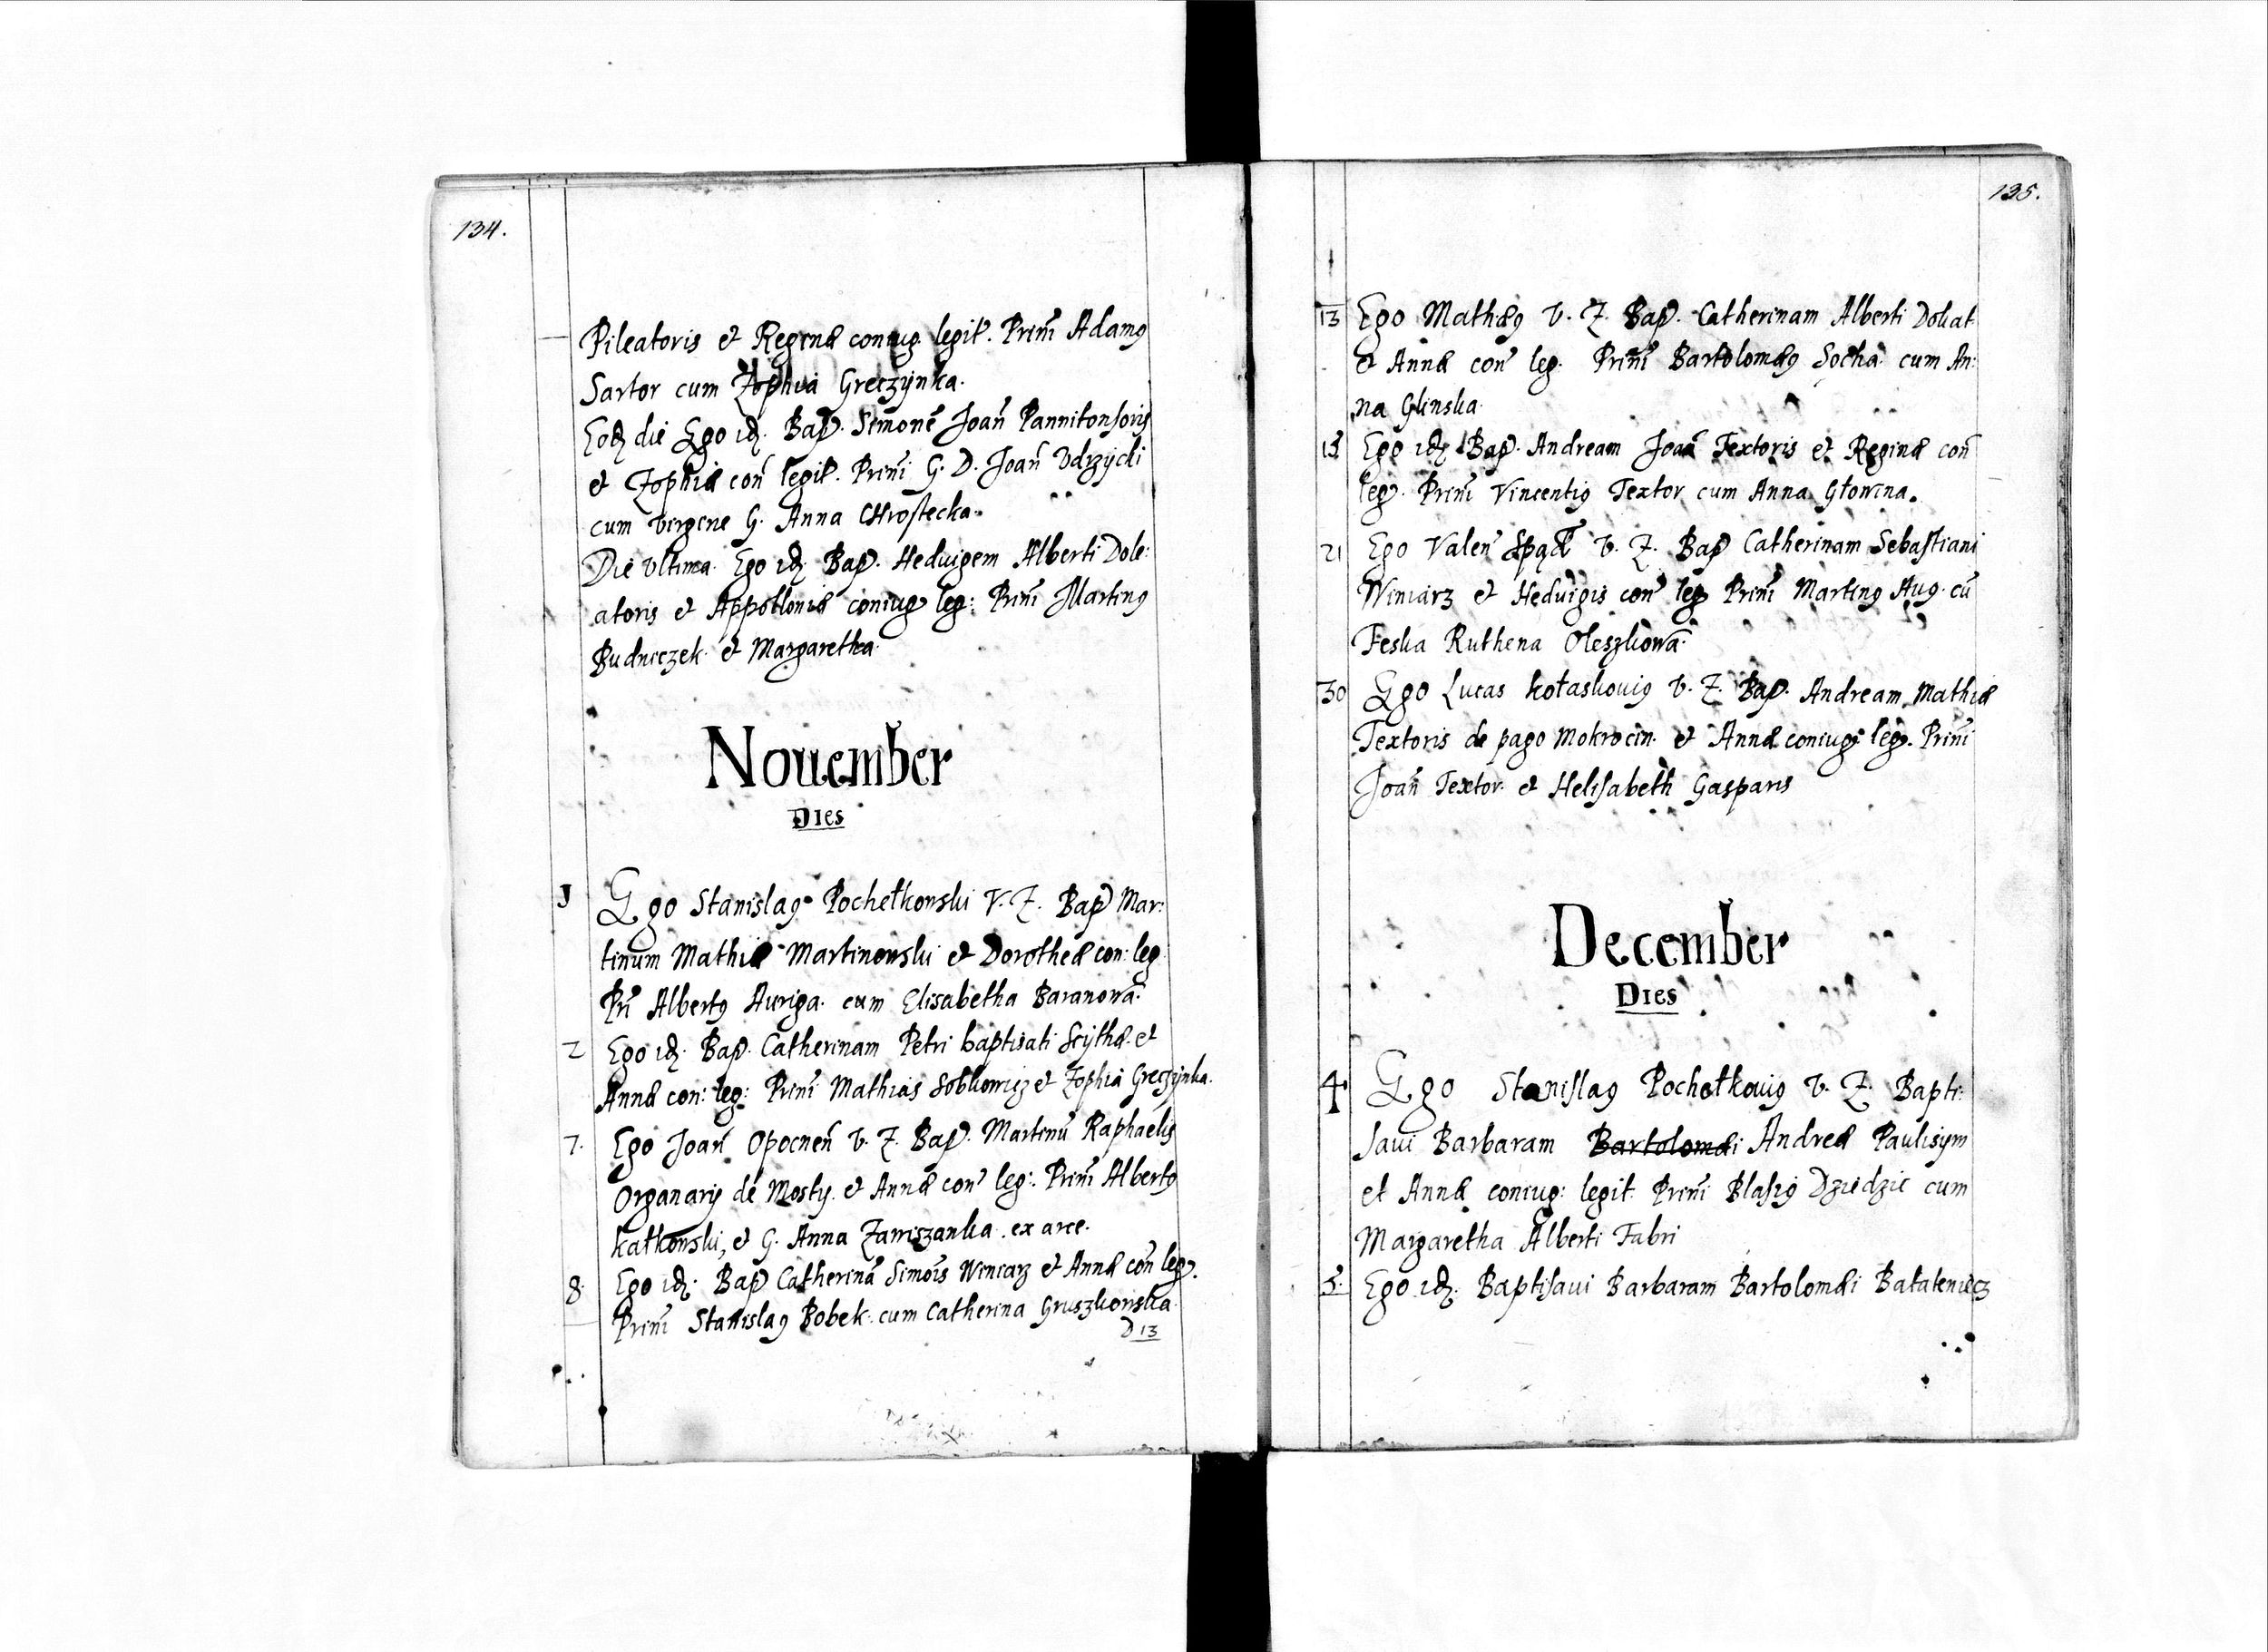 134.
Pileatoris et Reginæ coniug. legit. Prñi Adamꝯ
Sartor cum Zophia Greczÿnka.
Eoꝺ die Ego iꝺ. Bap. Simonē Joañ Pannitonsoris
et Zophiæ coñ legit. Prñi G. D. Joañ Udrzÿcki
cum virgine G. Anna Chrostecka.
Die Ultima. Ego iꝺ. Bap. Heduigem Alberti Dole:
atoris et Appolloniæ coniug leg: Prñi Martinꝯ
Budniczek. et Margaretha.
Nouember
Dies
1 Ego Stanislaꝯ Pochełkowski V. Z. Bap Mar:
tinum Mathiæ Martinowski et Dorotheæ con: leg.
Prñi Albertꝯ Auriga. cum Elisabetha Baranowa.
2 Ego iꝺ. Bap. Catherinam Petri baptisati Scÿthæ. et
Annæ con: leg: Prñi Mathias Sobkowicz et Zophia Greczÿnka.
7. Ego Joañ Opocneñ V. Z. Bap. Martinū Raphaelis
Organarÿ de Mostÿ. et Annæ coñ leg: Prñi Albertꝯ
Kałkowski, et G. Anna Zawiszanka. ex arce.
8. Ego iꝺ. Bap Catherinā Simõis Winiarz et Annæ coñ leg.
Prñi Stanislaꝯ Bobek. cum Catherina Gruszkowska.
D 13
135.
13 Ego Mathæꝯ V. Z. Bap. Catherinam Alberti Dokat
et Annæ coñ leg. Prñi Bartolomæꝯ Socha cum An:
na Glinska.
15 Ego iꝺ. Bap. Andream Joañ Textoris et Reginæ coñ
leg. Prñi Vincentiꝯ Textor cum Anna Głowina.
21 Ego Valeñ V. Z. Bap Catherinam Sebastiani
Winiarz et Heduigis coñ leg Prñi Martinꝯ Aug. cū
Feska Ruthena Oleszkowa.
30 Ego Lucas Kołaskouiꝯ V. Z. Bap. Andream Mathiæ
Textoris de pago Mokrocin. et Annæ coniug: leg. Prñi
Joañ Textor. et Helisabeth Gasparis
December
Dies
4 Ego Stanislaꝯ Pochełkouiꝯ V. Z. Bapti:
saui Barbaram Bartolomæi Andreæ Paulisÿm
et Annæ coniug: legit. Prñi Blasiꝯ Dziedzic cum
Margaretha Alberti Fabri
5. Ego iꝺ. Baptisaui Barbaram Bartolomæi Batatewicz